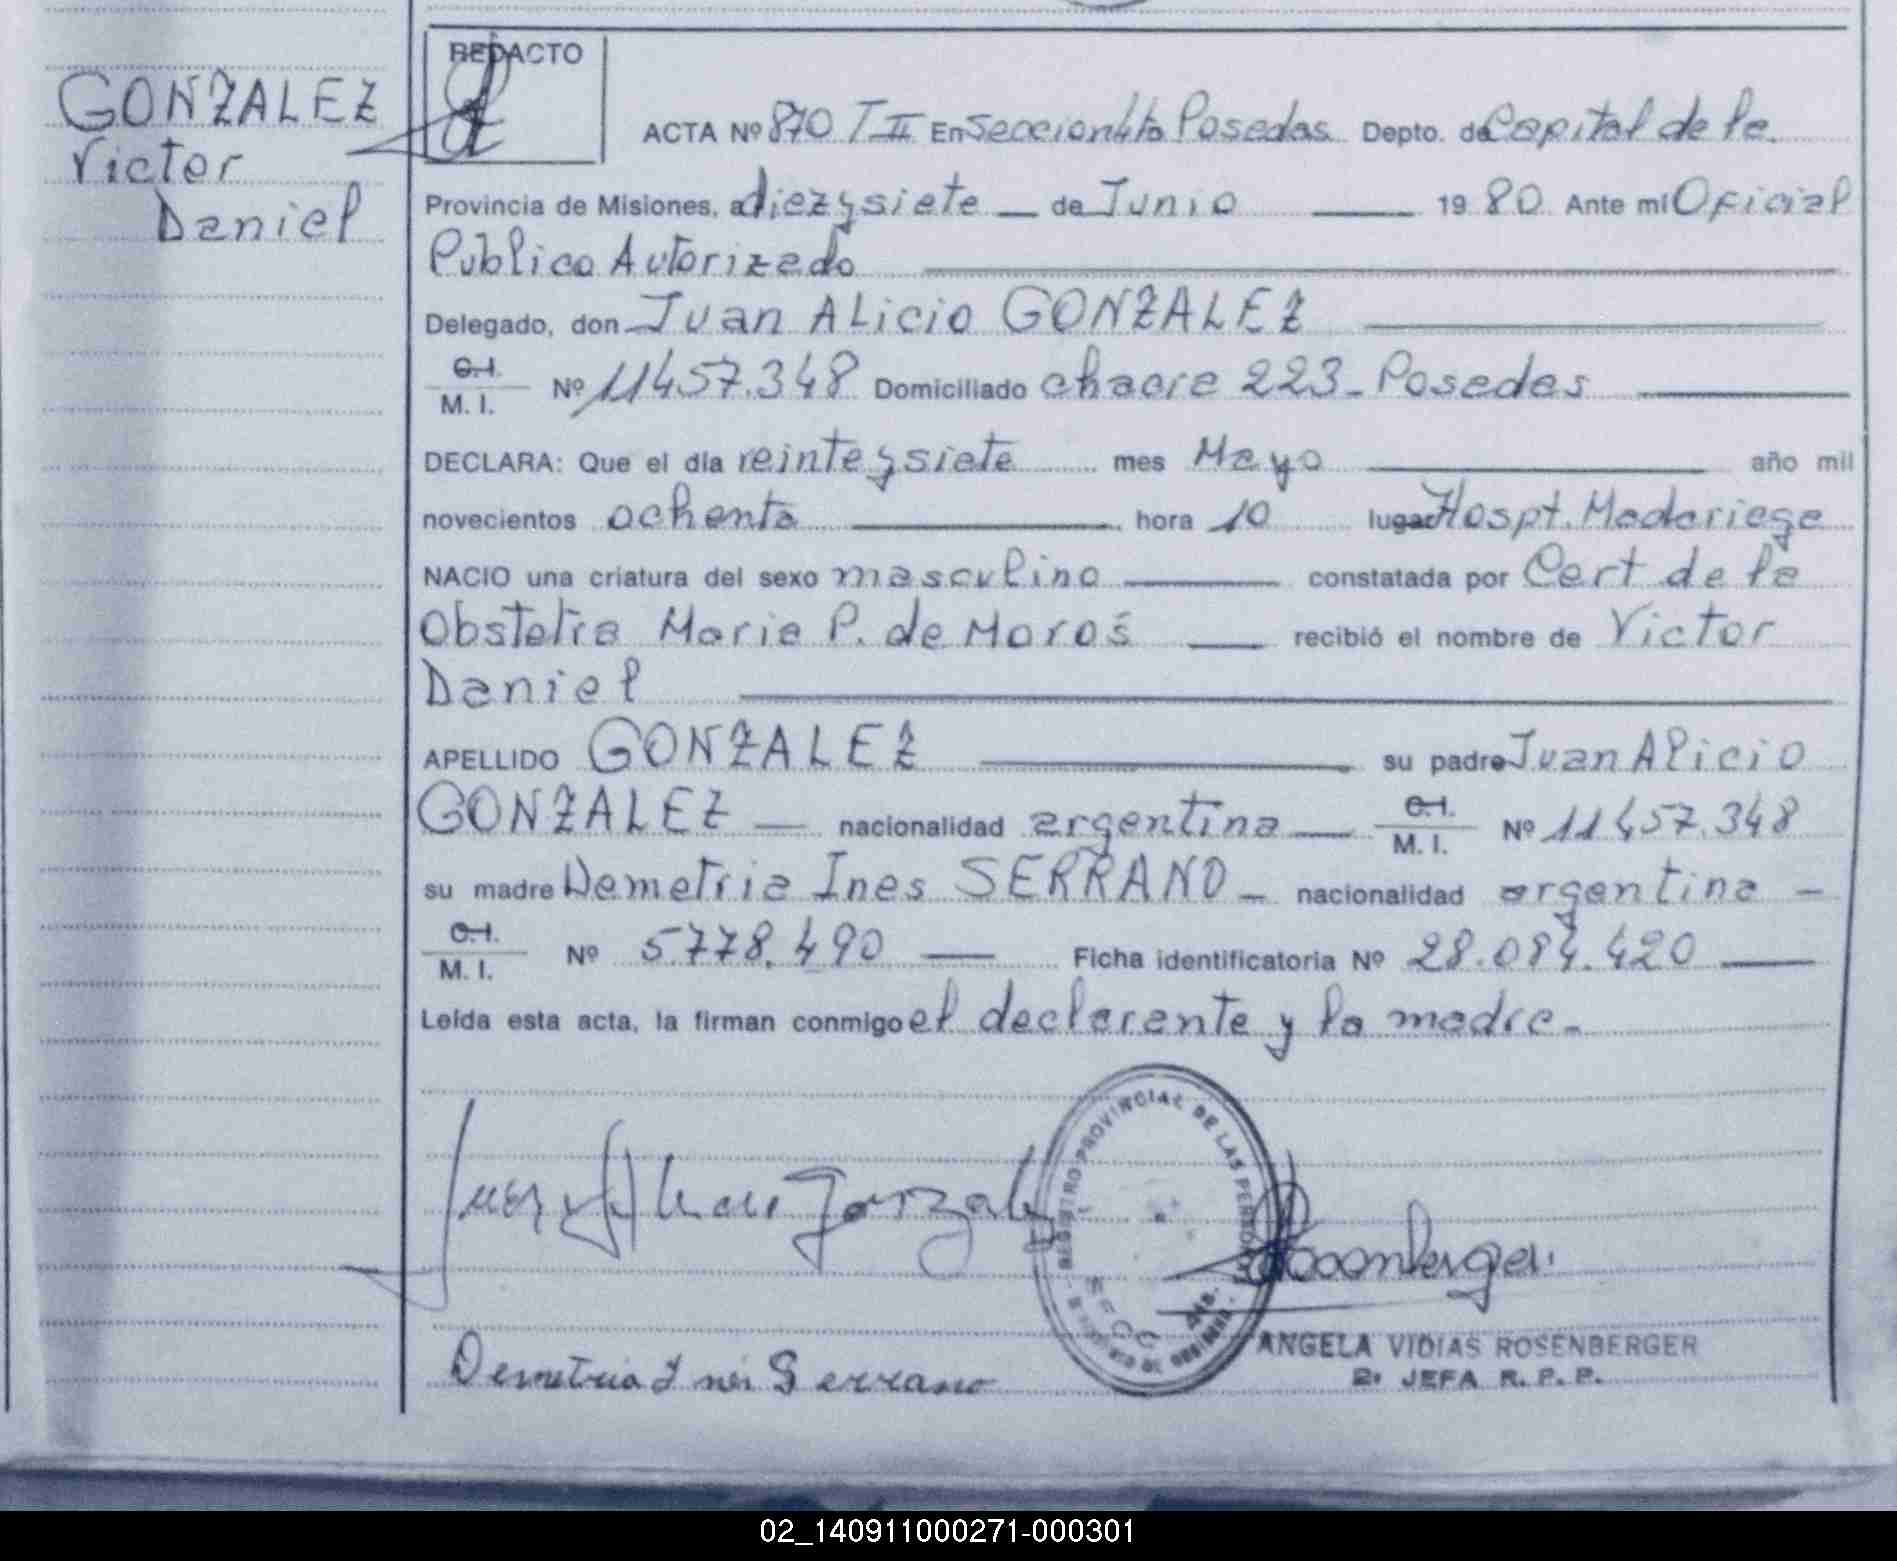 GONZALEZ
Victor
Daniel
REDACTO
ACTA Nº 870 T II En Seccion 4ta Posadas Depto. de Capital de la
Provincia de Misiones, a diez y siete de Junio 19 80 Ante mi Oficial
Publico Autorizado
Delegado, don Juan ALicio GONZALEZ
C.I.
M. I. Nº 11457.348 Domiciliado chacra 223 - Posadas
DECLARA: Que el día veinte y siete mes Mayo año mil
novecientos ochenta hora 10 lugar Hospt. Madariaga
NACIO una criatura del sexo masculino constatada por Cert de la
Obstetra Maria P. de Moros recibió el nombre de Victor
Daniel
APELLIDO GONZALEZ su padre Juan Alicio
GONZALEZ nacionalidad argentina C.I.
M. I. Nº 11457.348
su madre Demetria Ines SERRANO - nacionalidad argentina -
C.I.
M. I. Nº 5.778.490 Ficha identificatoria Nº 28.084.420
Leída esta acta, la firman conmigo el declarante y la madre.-
Juan Alicio Gonzalez
REGISTRO PROVINCIAL DE LAS PERSONAS
Rosenberger
ANGELA VIDIAS ROSENBERGER
2ª JEFA R. P. P.
Demetria Ines Serrano
02_140911000271-000301